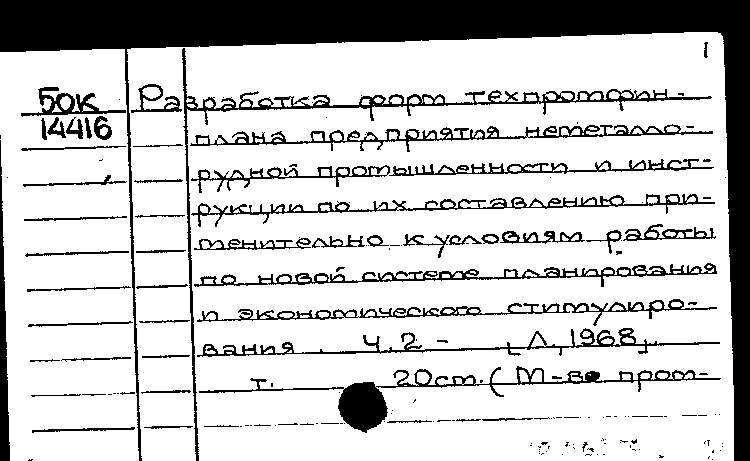 1
БОК Разработка форм техпромфин-
14416 плана предприятия неметалло-
рудной промышленности и инст-
рукции по их составлению при-
менительно к условиям работы
по новой системе планирования
и экономического стимулиро-
вания. Ч.2 - [Л., 1968].
т. 20см. (М-во пром-